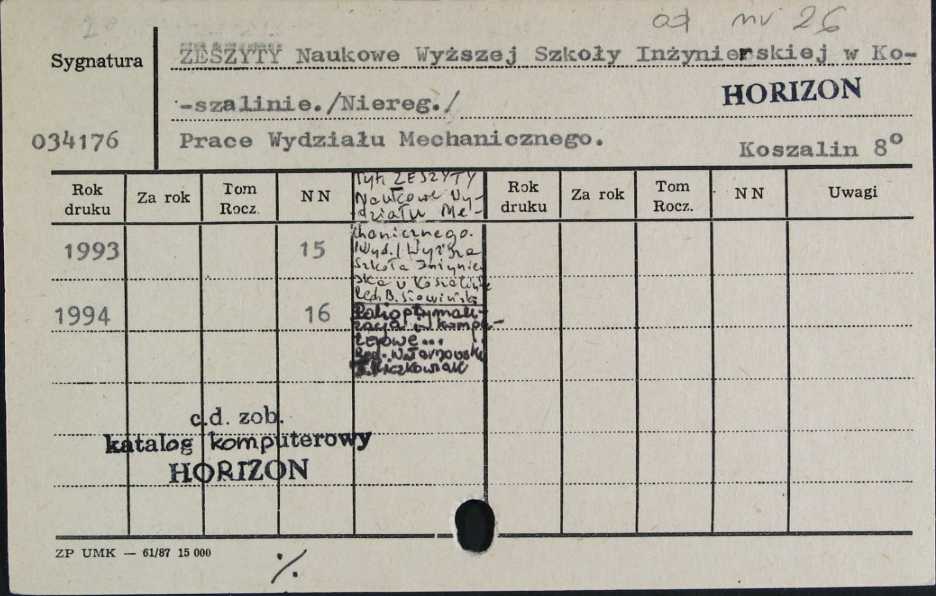 od nr 26
Sygnatura
ZESZYTY Naukowe Wyższej Szkoły Inżynierskiej w Ko-
-szalinie./Niereg./
HORIZON
034176
Prace Wydziału Mechanicznego.
Koszalin 8°
Rok druku
Za rok
Tom Rocz.
N N
Tyt. ZESZYTY
Naukowe Wy-
działu Me-
chanicznego.
Wyd./Wyższa
Szkoła Inżynier
ska w Koszalinie
Red. B. Słowiński
Rok druku
Za rok
Tom Rocz.
N N
Uwagi
1993
15
1994
16
Polioptymali-
zacja i kompu-
terowe...
Red. W. Tarnowski
T. Kiczkowiak
c.d. zob.
katalog komputerowy
HORIZON
ZP UMK — 61/87 15 000